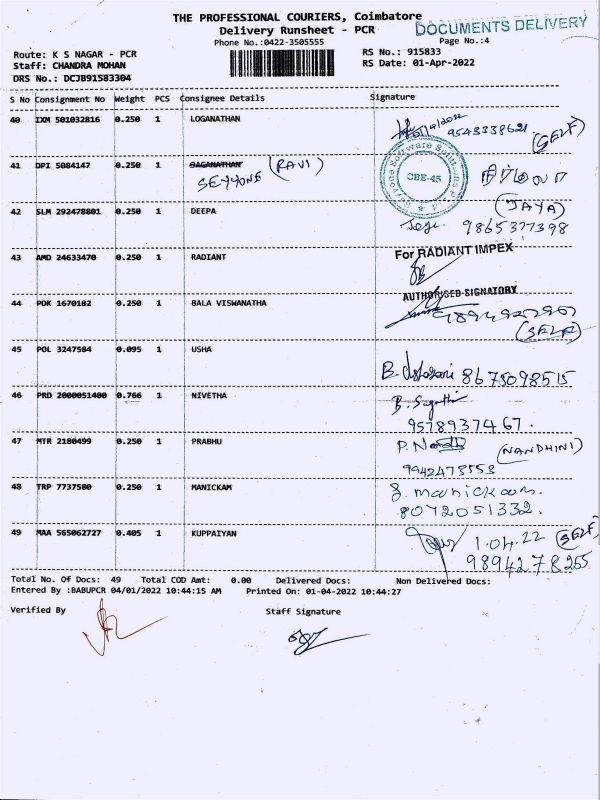 THE PROFESSIONAL COURIERS, Coimbatore
Delivery Runsheet - PCR
DOCUMENTS DELIVERY
Phone No.:0422-3505555
Page No.:4
Route: K S NAGAR - PCR
RS No.: 915833
Staff: CHANDRA MOHAN
RS Date: 01-Apr-2022
DRS No.: DCJB91583304
S No Consignment No Weight PCS Consignee Details Signature
40 IXM 501032816 0.250 1 LOGANATHAN
9543338621 (SELF)
41 DPI 5084147 0.250 1 GAGANATHAN (RAVI)
SEYYONE
CBE-45
42 SLM 292478801 0.250 1 DEEPA (JAYA)
9865377398
43 AMD 24633470 0.250 1 RADIANT For RADIANT IMPEX
AUTHORISED SIGNATORY
44 PDK 1670182 0.250 1 BALA VISWANATHA
(SELF)
45 POL 3247584 0.095 1 USHA
8675098515
46 PRD 2000051400 0.766 1 NIVETHA
9578937467.
47 MTR 2180499 0.250 1 PRABHU (NANDHINI)
9942473553
48 TRP 7737580 0.250 1 MANICKAM
8072051332.
49 MAA 565062727 0.405 1 KUPPAIYAN 1.04.22 (SELF)
9894278255
Total No. Of Docs: 49 Total COD Amt: 0.00 Delivered Docs: Non Delivered Docs:
Entered By :BABUPCR 04/01/2022 10:44:15 AM Printed On: 01-04-2022 10:44:27
Verified By
Staff Signature